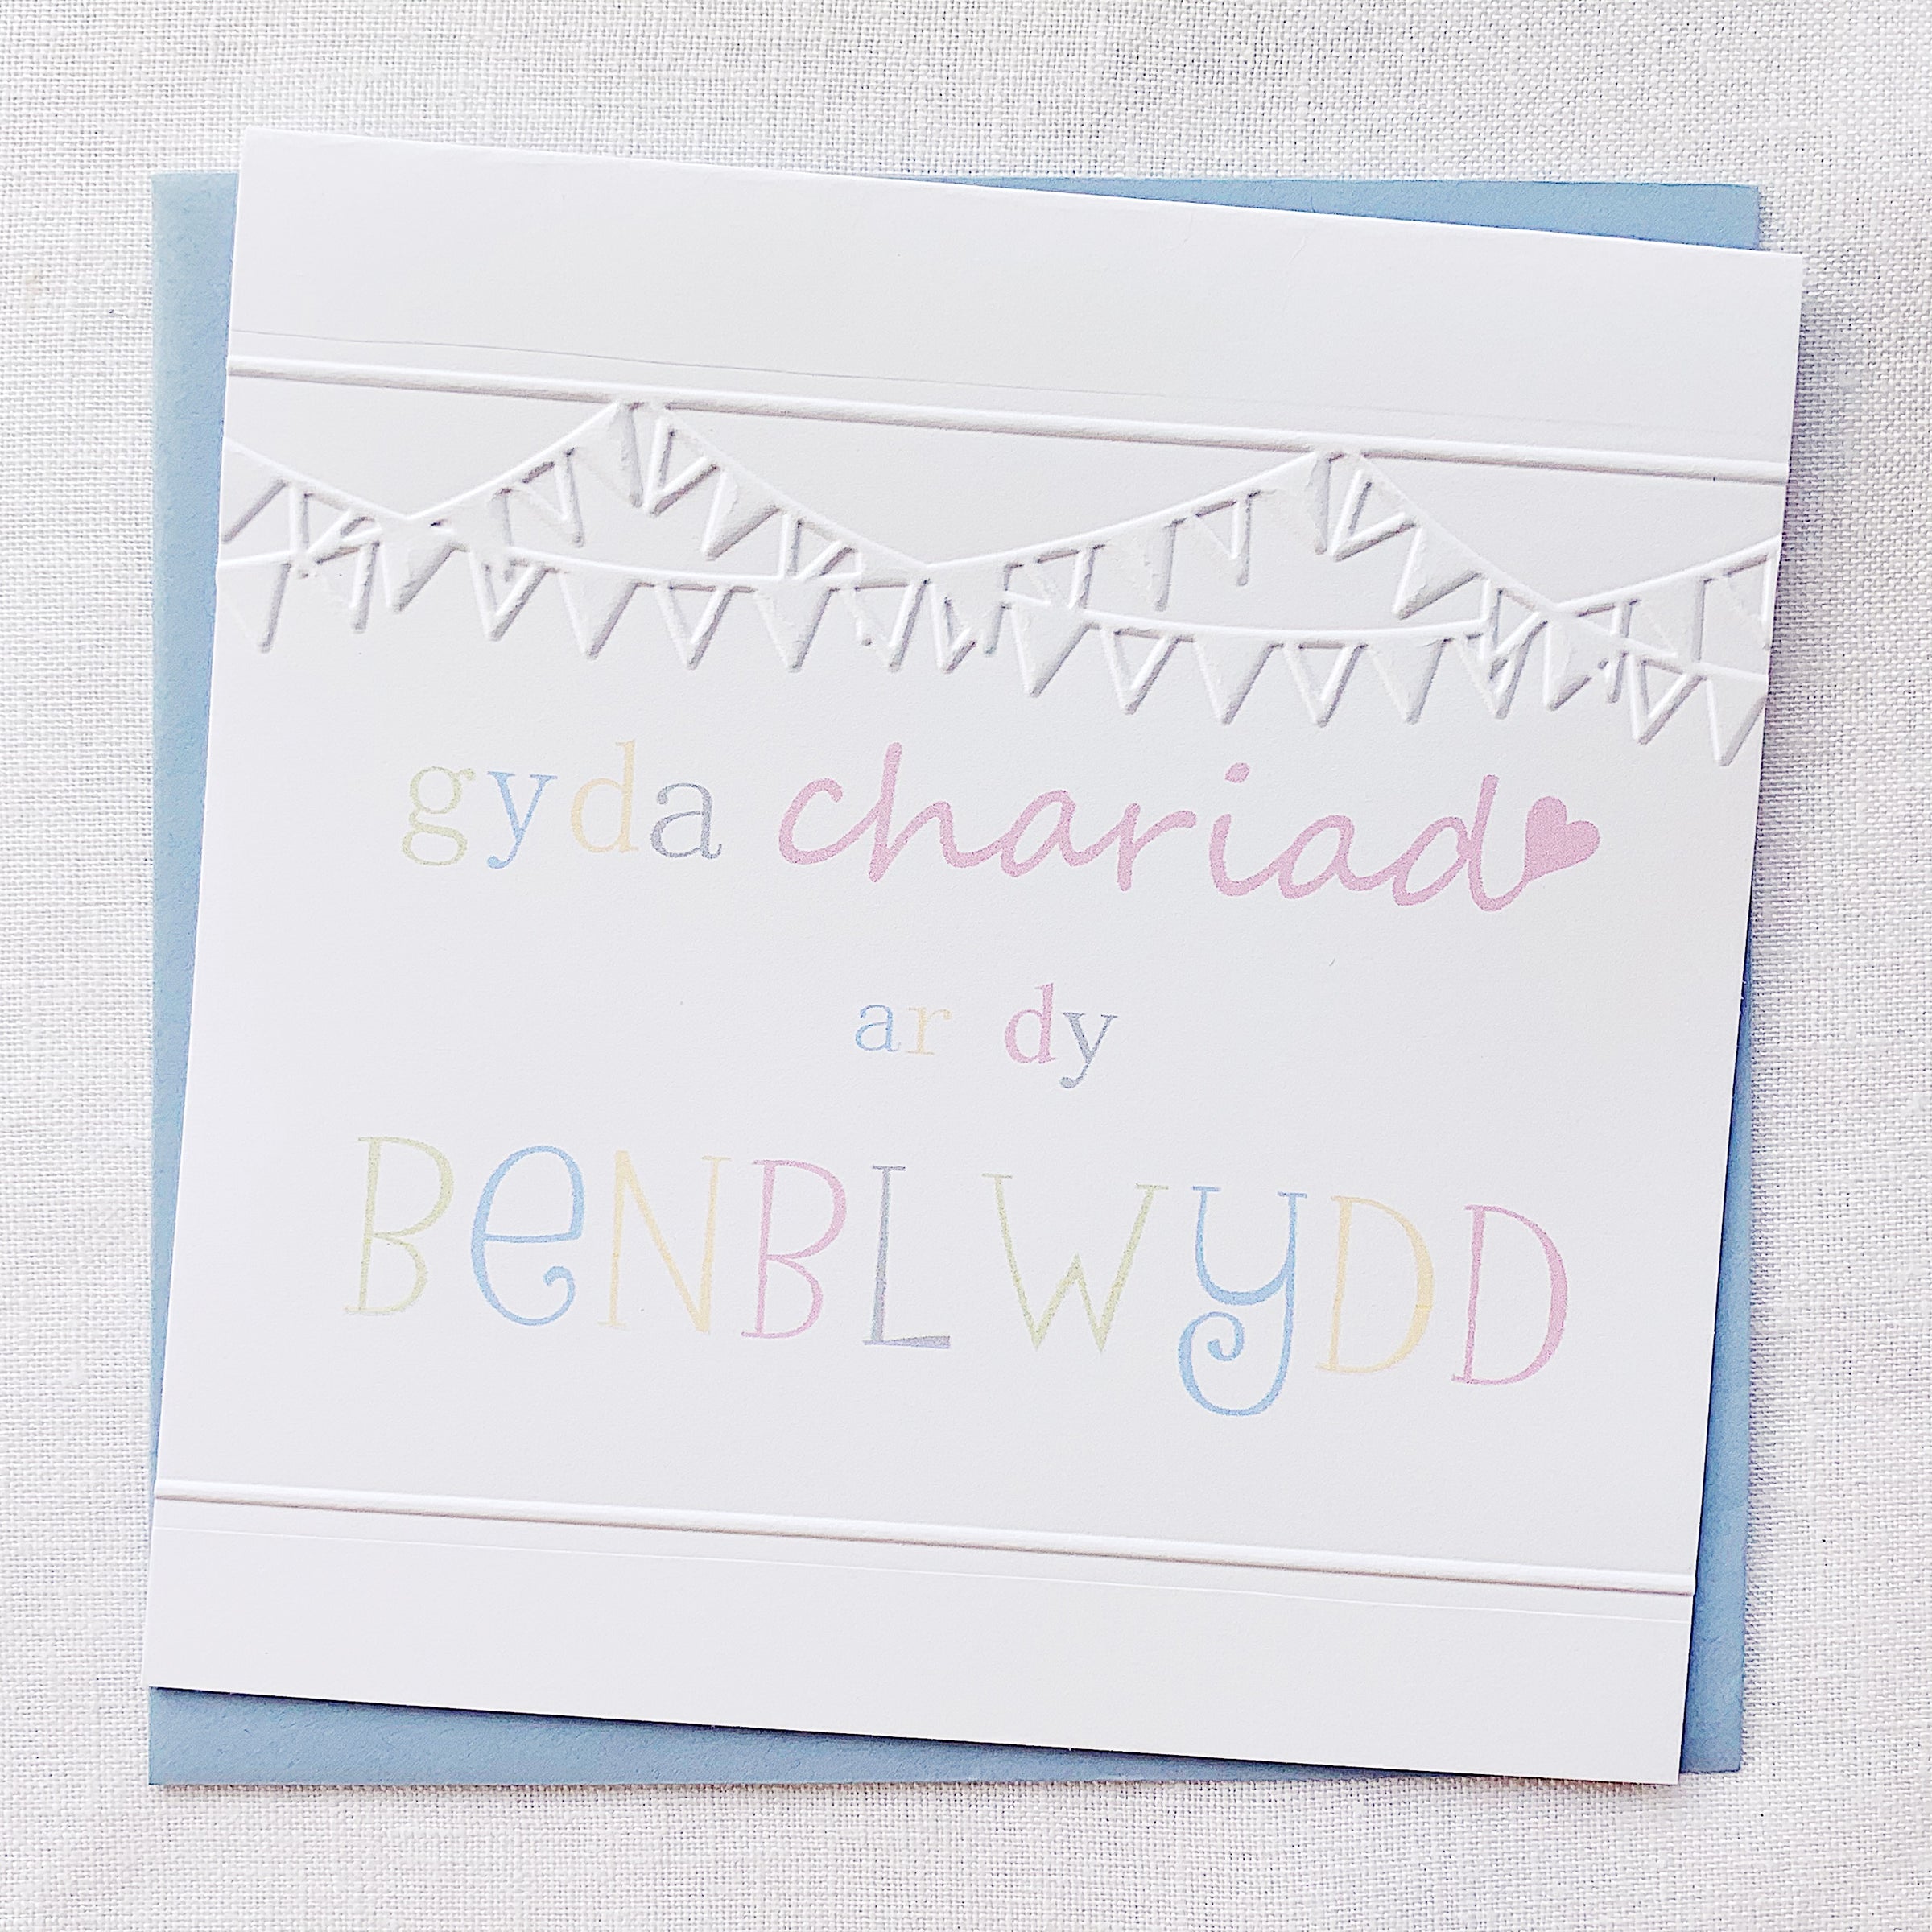 gyda chariad
ar dy
BeNBLWyDD